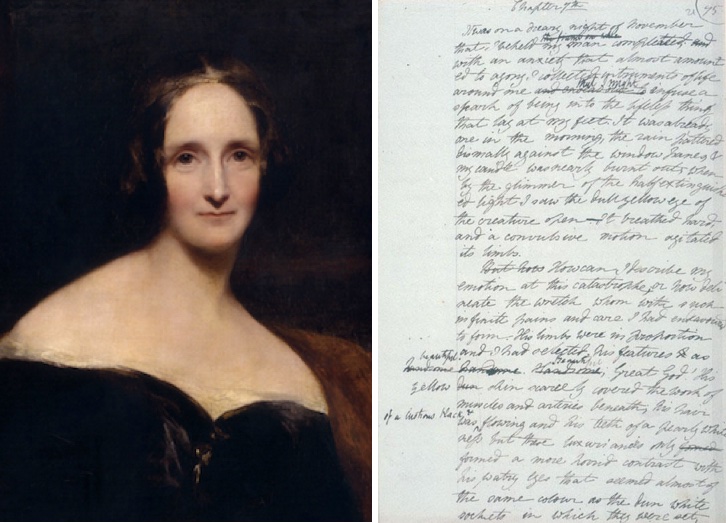 Chapter 7th
It was on a dreary night of November
that I beheld my man compleated and
with an anxiety that almost amount
ed to agony I collected instruments of life
around me that I might infuse a
spark of being into the lifeless thing
that lay at my feet. It was already
one in the morning, the rain pattered
dismally against the window panes &
my candle was nearly burnt out, when
by the glimmer of the half extinguish
ed light I saw the dull yellow eye of
the creature open—It breathed hard,
and a convulsive motion agitated
its limbs.
But how How can I describe my
emotion at this catastrophe, or how deli
neate the wretch whom with such
infinite pains and care I had endeavoured
to form. His limbs were in proportion
and I had selected his features as
beautiful
handsome Handsome; Great God! His
yellow dun skin scarcely covered the work of
muscles and arteries beneath; his hair
of a lustrous black &
was flowing and his teeth of a pearly white
ness but these luxuriances only
formed a more horrid contrast with
his watry eyes that seemed almost of
the same colour as the dun white
sockets in which they were set,